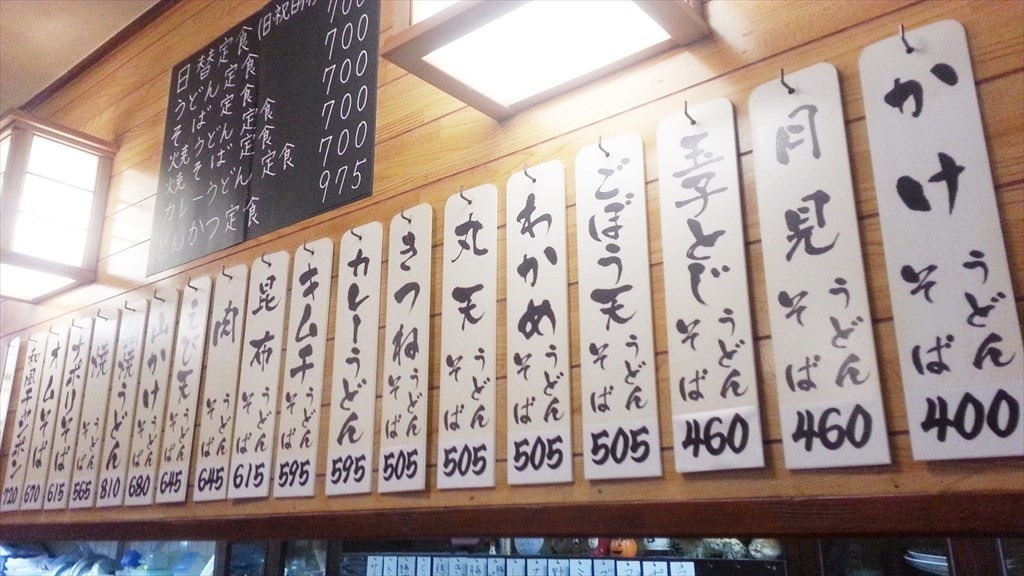 (日・祝日
700
日替定食 700
うどん定食 700
そば定食 700
焼うどん定食 700
焼そば定食
カレーうどん定食
とんかつ定食 975
かけ うどん そば 400
月見 うどん そば 460
玉子とじ うどん そば 460
ごぼう天 うどん そば 505
わかめ うどん そば 505
丸天 うどん そば 505
きつね うどん そば 505
カレーうどん 595
キムチ うどん そば 595
昆布 うどん そば 615
肉 うどん そば 645
えび天 うどん そば 645
山かけ うどん そば 680
焼うどん 810
焼そば 565
ナポリそば 615
オムそば 670
720